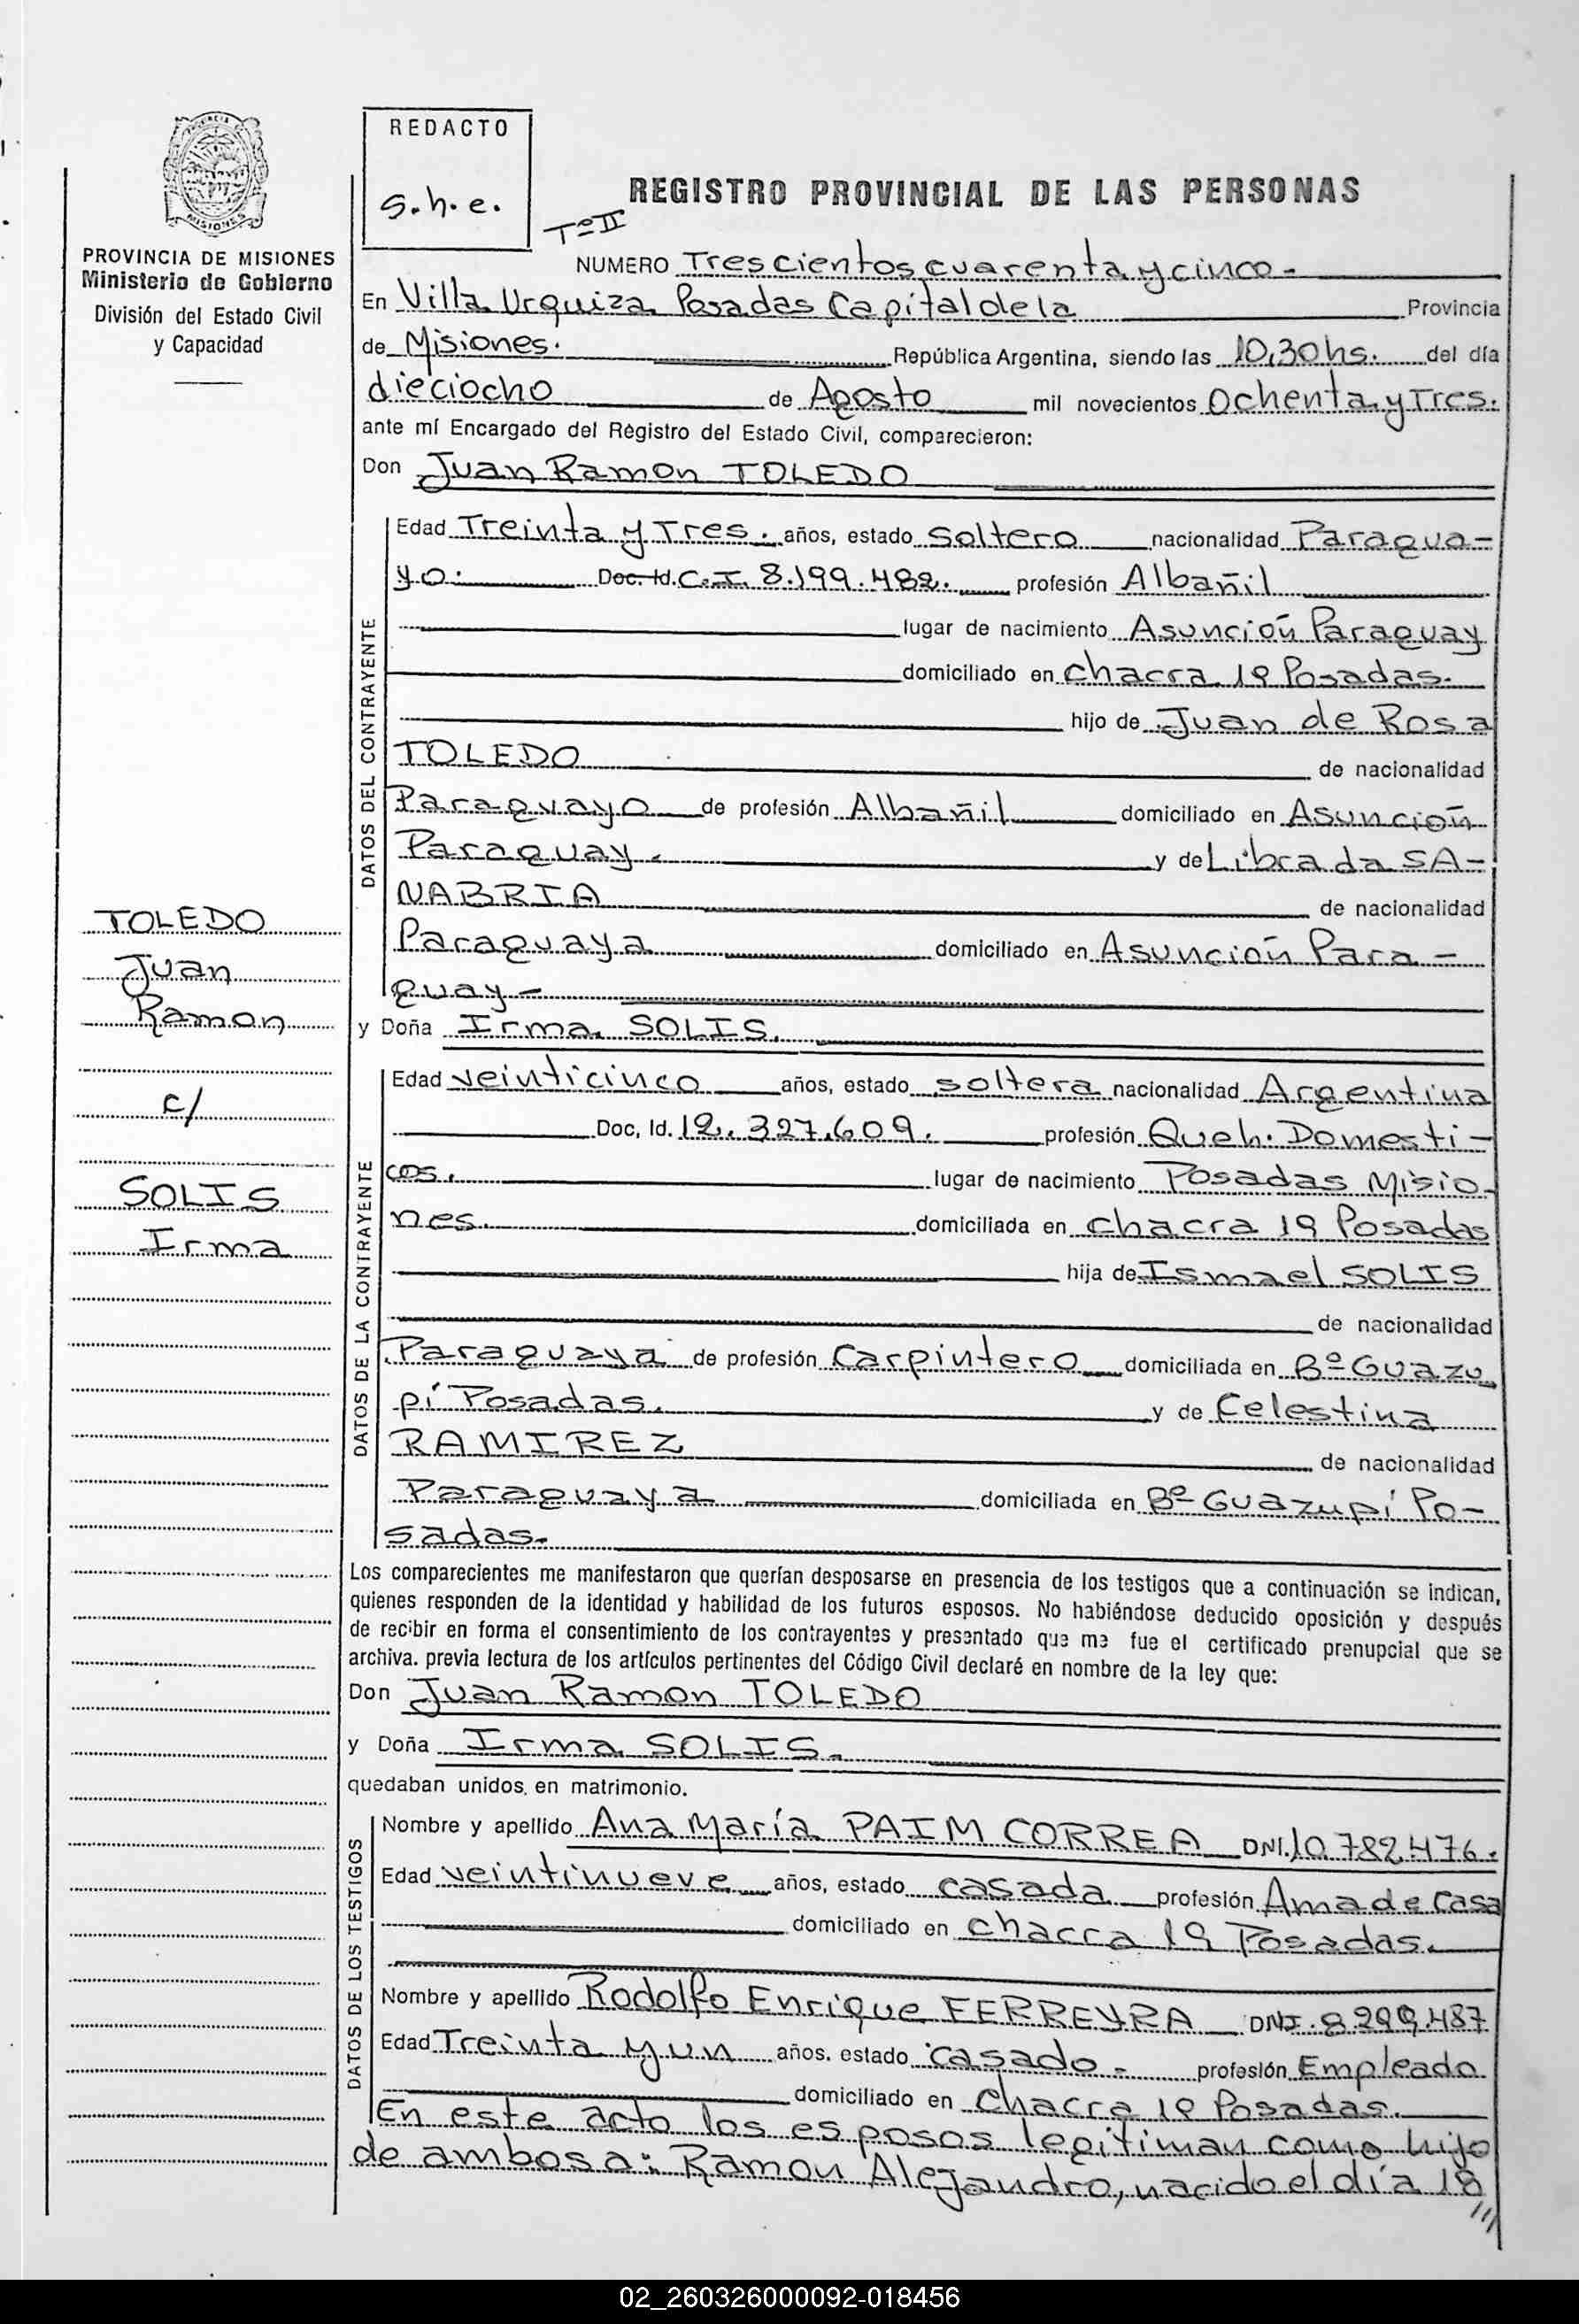 REDACTO
s.h.e.
PROVINCIA DE MISIONES
Ministerio de Gobierno
División del Estado Civil
y Capacidad
REGISTRO PROVINCIAL DE LAS PERSONAS
Tº II
NUMERO Trescientos cuarenta y cinco -
En Villa Urquiza Posadas Capital de la Provincia
de Misiones. República Argentina, siendo las 10,30 hs. del día
dieciocho de Agosto mil novecientos Ochenta y Tres.
ante mí Encargado del Registro del Estado Civil, comparecieron:
Don Juan Ramon TOLEDO
DATOS DEL CONTRAYENTE
Edad Treinta y Tres. años, estado Soltero nacionalidad Paragua-
yo. Doc. Id. C.I. 8.199.482. profesión Albañil
lugar de nacimiento Asunción Paraguay
domiciliado en chacra 19 Posadas.
hijo de Juan de Rosa
TOLEDO de nacionalidad
Paraguayo de profesión Albañil domiciliado en Asunción
Paraguay. y de Librada SA-
NABRIA de nacionalidad
Paraguaya domiciliado en Asunción Para-
guay-
y Doña Irma SOLIS.
DATOS DE LA CONTRAYENTE
Edad veinticinco años, estado soltera nacionalidad Argentina
Doc, Id. 12.327.609. profesión Queh. Domesti-
cos. lugar de nacimiento Posadas Misio-
nes. domiciliada en chacra 19 Posadas
hija de Ismael SOLIS
de nacionalidad
Paraguaya de profesión Carpintero domiciliada en Bº Guazu
pí Posadas. y de Celestina
RAMIREZ de nacionalidad
Paraguaya domiciliada en Bº Guazupí Po-
sadas.
Los comparecientes me manifestaron que querían desposarse en presencia de los testigos que a continuación se indican,
quienes responden de la identidad y habilidad de los futuros esposos. No habiéndose deducido oposición y después
de recibir en forma el consentimiento de los contrayentes y presentado que me fue el certificado prenupcial que se
archiva. previa lectura de los artículos pertinentes del Código Civil declaré en nombre de la ley que:
Don Juan Ramon TOLEDO
y Doña Irma SOLIS.
quedaban unidos en matrimonio.
DATOS DE LOS TESTIGOS
Nombre y apellido Ana María PAIM CORREA DNI. 10.782.476.
Edad veintinueve años, estado casada profesión Ama de Casa
domiciliado en chacra 19 Posadas.
Nombre y apellido Rodolfo Enrique FERREYRA DNI. 8.299.487
Edad Treinta y un años. estado casado- profesión Empleado
domiciliado en Chacra 19 Posadas.
En este acto los esposos legitiman como hijo
de ambos a: Ramon Alejandro, nacido el día 18
///
TOLEDO
Juan
Ramon
c/
SOLIS
Irma
02_260326000092-018456